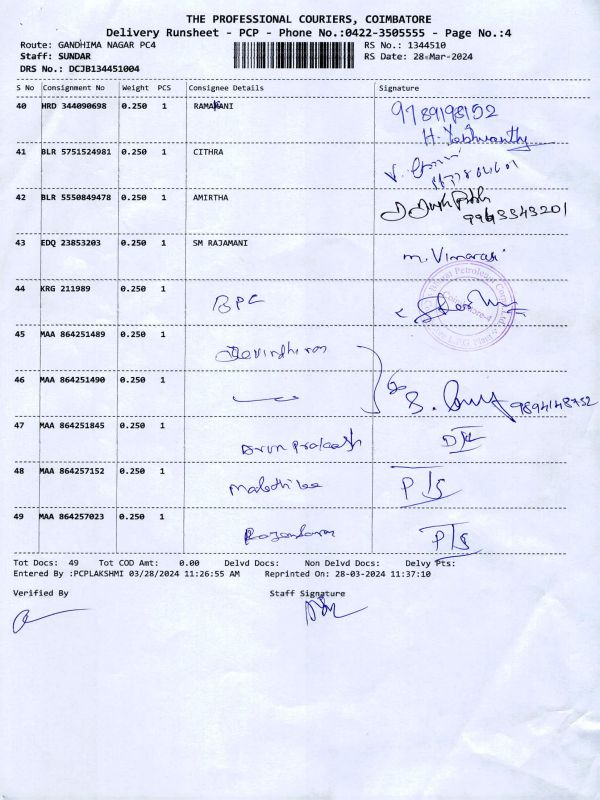 THE PROFESSIONAL COURIERS, COIMBATORE
Delivery Runsheet - PCP - Phone No.:0422-3505555 - Page No.:4
Route: GANDHIMA NAGAR PC4 RS No.: 1344510
Staff: SUNDAR RS Date: 28-Mar-2024
DRS No.: DCJB134451004
S No Consignment No Weight PCS Consignee Details Signature
40 HRD 344090698 0.250 1 RAMAMANI 9789198152
H. Yashwanthy
41 BLR 5751524981 0.250 1 CITHRA
42 BLR 5550849478 0.250 1 AMIRTHA
9963343201
43 EDQ 23853203 0.250 1 SM RAJAMANI m. Vimarasi
44 KRG 211989 0.250 1 BPC
Coimbatore-4
45 MAA 864251489 0.250 1 Devindhiran
46 MAA 864251490 0.250 1
9894148752
47 MAA 864251845 0.250 1 Arun Prakash
48 MAA 864257152 0.250 1
49 MAA 864257023 0.250 1
Tot Docs: 49 Tot COD Amt: 0.00 Delvd Docs: Non Delvd Docs: Delvy Pts:
Entered By :PCPLAKSHMI 03/28/2024 11:26:55 AM Reprinted On: 28-03-2024 11:37:10
Verified By Staff Signature